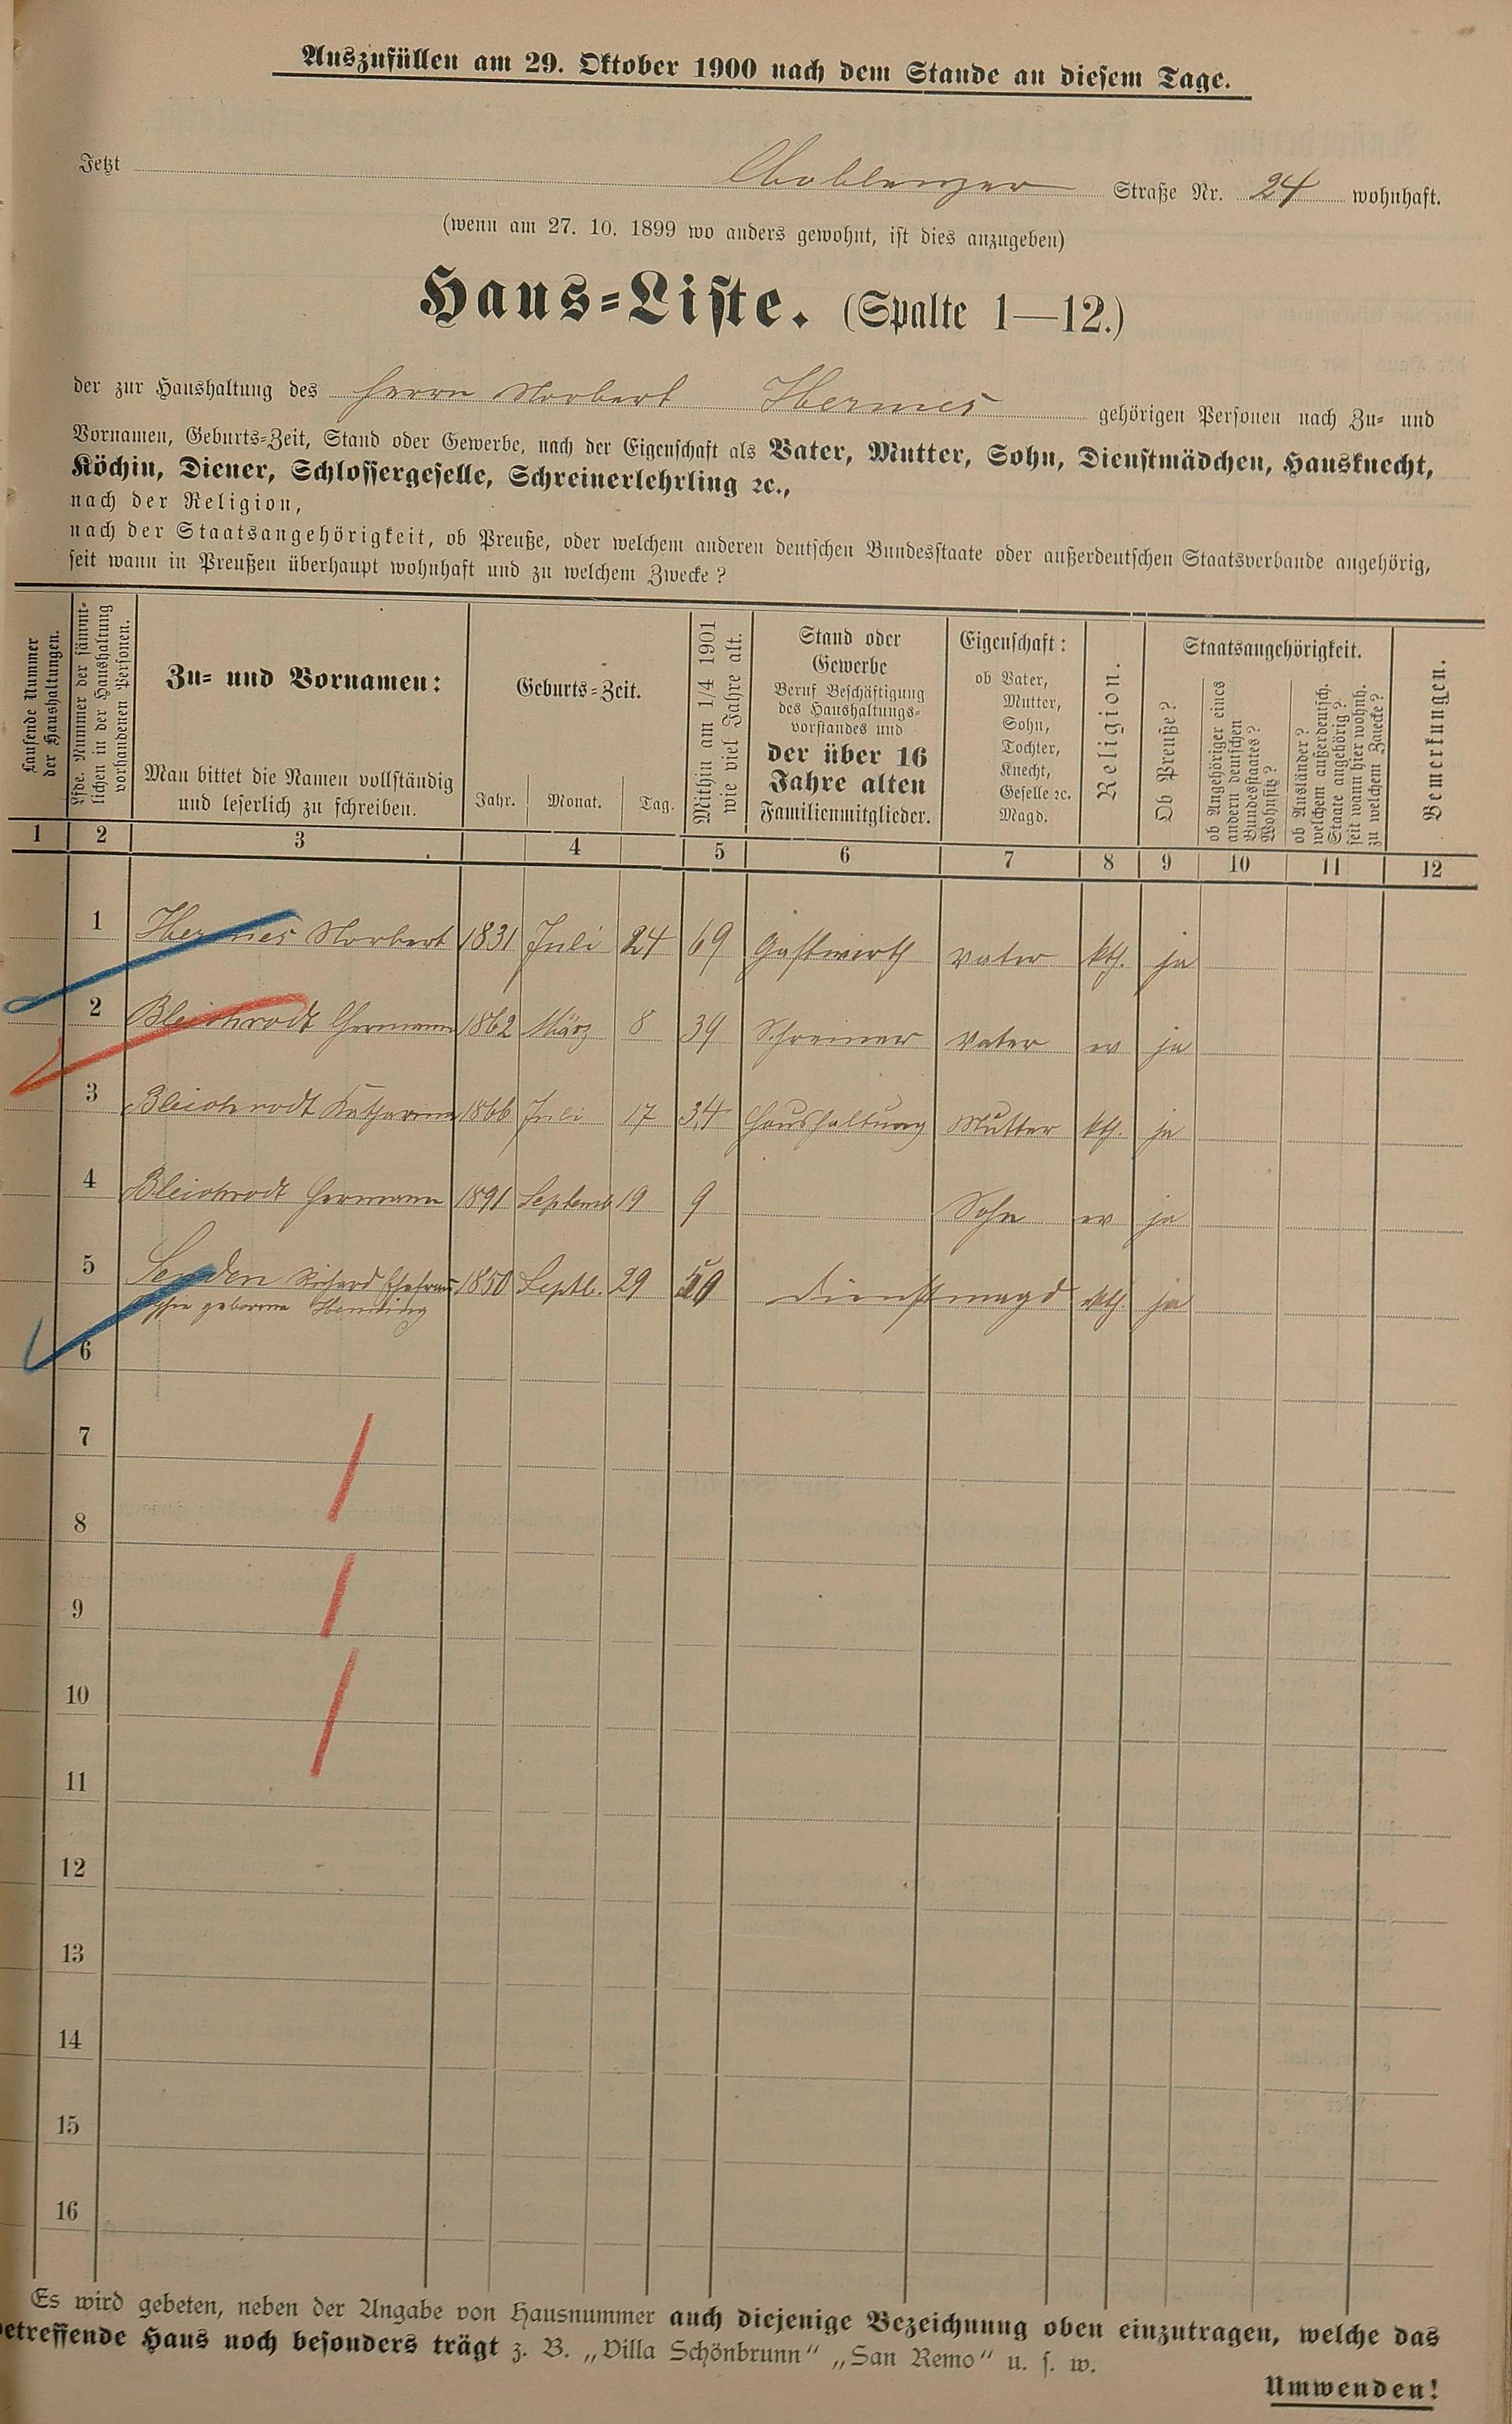 Auszufüllen am 29. Oktober 1900 nach dem Stande an diesem Tage.
Jetzt Coblenzer Straße Nr. 24 wohnhaft.
(wenn am 27. 10. 1899 wo anders gewohnt, ist dies anzugeben)
Haus-Liste. (Spalte 1—12.)
der zur Haushaltung des Herrn Norbert Hermes gehörigen Personen nach Zu- und
Vornamen, Geburts-Zeit, Stand oder Gewerbe, nach der Eigenschaft als Vater, Mutter, Sohn, Dienstmädchen, Hausknecht,
Köchin, Diener, Schlossergeselle, Schreinerlehrling ꝛc.,
nach der Religion,
nach der Staatsangehörigkeit, ob Preuße, oder welchem anderen deutschen Bundesstaate oder außerdeutschen Staatsverbande angehörig,
seit wann in Preußen überhaupt wohnhaft und zu welchem Zwecke?
Laufende Nummer
der Haushaltungen.
Lfde. Nummer der sämmt-
lichen in der Haushaltung
vorhandenen Personen.
Zu- und Vornamen:
Man bittet die Namen vollständig
und leserlich zu schreiben.
Geburts-Zeit.
Jahr. Monat. Tag.
Mithin am 1/4 1901
wie viel Jahre alt.
Stand oder
Gewerbe
Beruf Beschäftigung
des Haushaltungs-
vorstandes und
der über 16
Jahre alten
Familienmitglieder.
Eigenschaft:
ob Vater,
Mutter,
Sohn,
Tochter,
Knecht,
Geselle ꝛc.
Magd.
Religion.
Staatsangehörigkeit.
Ob Preuße?
ob Angehöriger eines
andern deutschen
Bundesstaates?
Wohnsitz?
ob Ausländer?
welchem außerdeutsch.
Staate angehörig?
seit wann hier wohnh.
zu welchem Zwecke?
Bemerkungen.
1 2 3 4 5 6 7 8 9 10 11 12
1 Hermes Norbert 1831 Juli 24 69 Gastwirth Vater kth. ja
2 Bleichrodt Hermann 1862 März 8 39 Schreiner Vater ev ja
3 Bleichrodt Katharina 1866 Juli 17 34 Haushaltung Mutter kth. ja
4 Bleichrodt Hermann 1891 Septemb 19 9 Sohn ev ja
5 Senden Richard Ehefrau 1850 Septb. 29 50 Dienstmagd kth. ja
geborene
6
7
8
9
10
11
12
13
14
15
16
Es wird gebeten, neben der Angabe von Hausnummer auch diejenige Bezeichnung oben einzutragen, welche das
betreffende Haus noch besonders trägt z. B. „Villa Schönbrunn“ „San Remo“ u. s. w.
Umwenden!